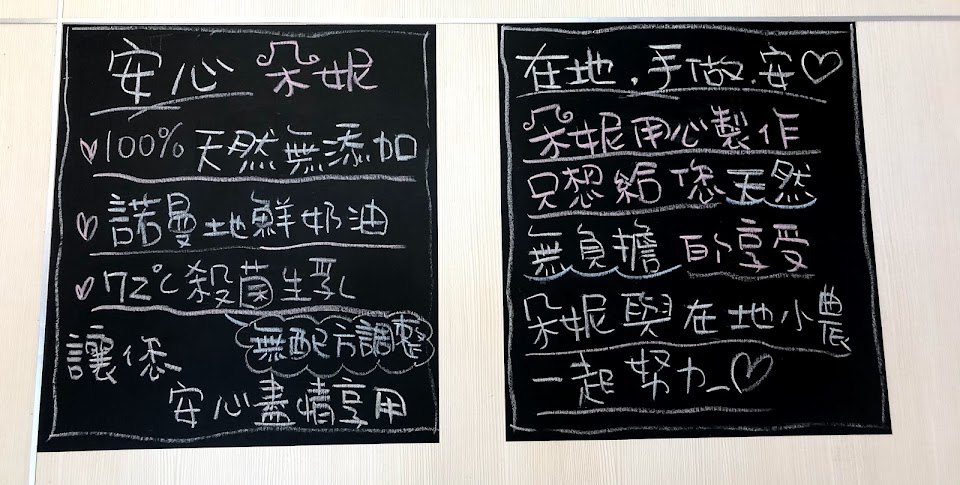 安心 朵妮
♡100% 天然無添加
♡諾曼土地鮮奶油
♡72℃殺菌生乳
無配方調整
讓您
安心盡情享用
在地.手做.安♡
朵妮用心製作
只想給您天然
無負擔的享受
朵妮與在地小農
一起努力♡